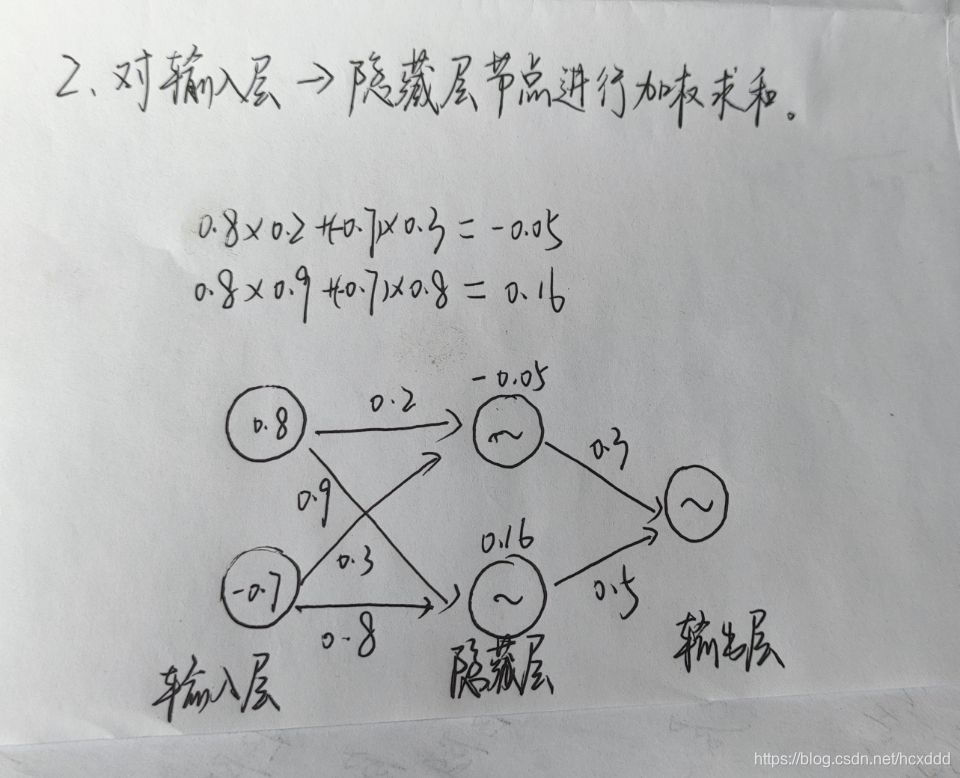 2、对输入层→隐藏层节点进行加权求和。
0.8×0.2+(-0.7)×0.3=-0.05
0.8×0.9+(-0.7)×0.8=0.16
-0.05
0.2
0.8
~
0.3
0.9
~
0.16
0.3
-0.7
~
0.5
0.8
输出层
隐藏层
输入层
https://blog.csdn.net/hcxddd